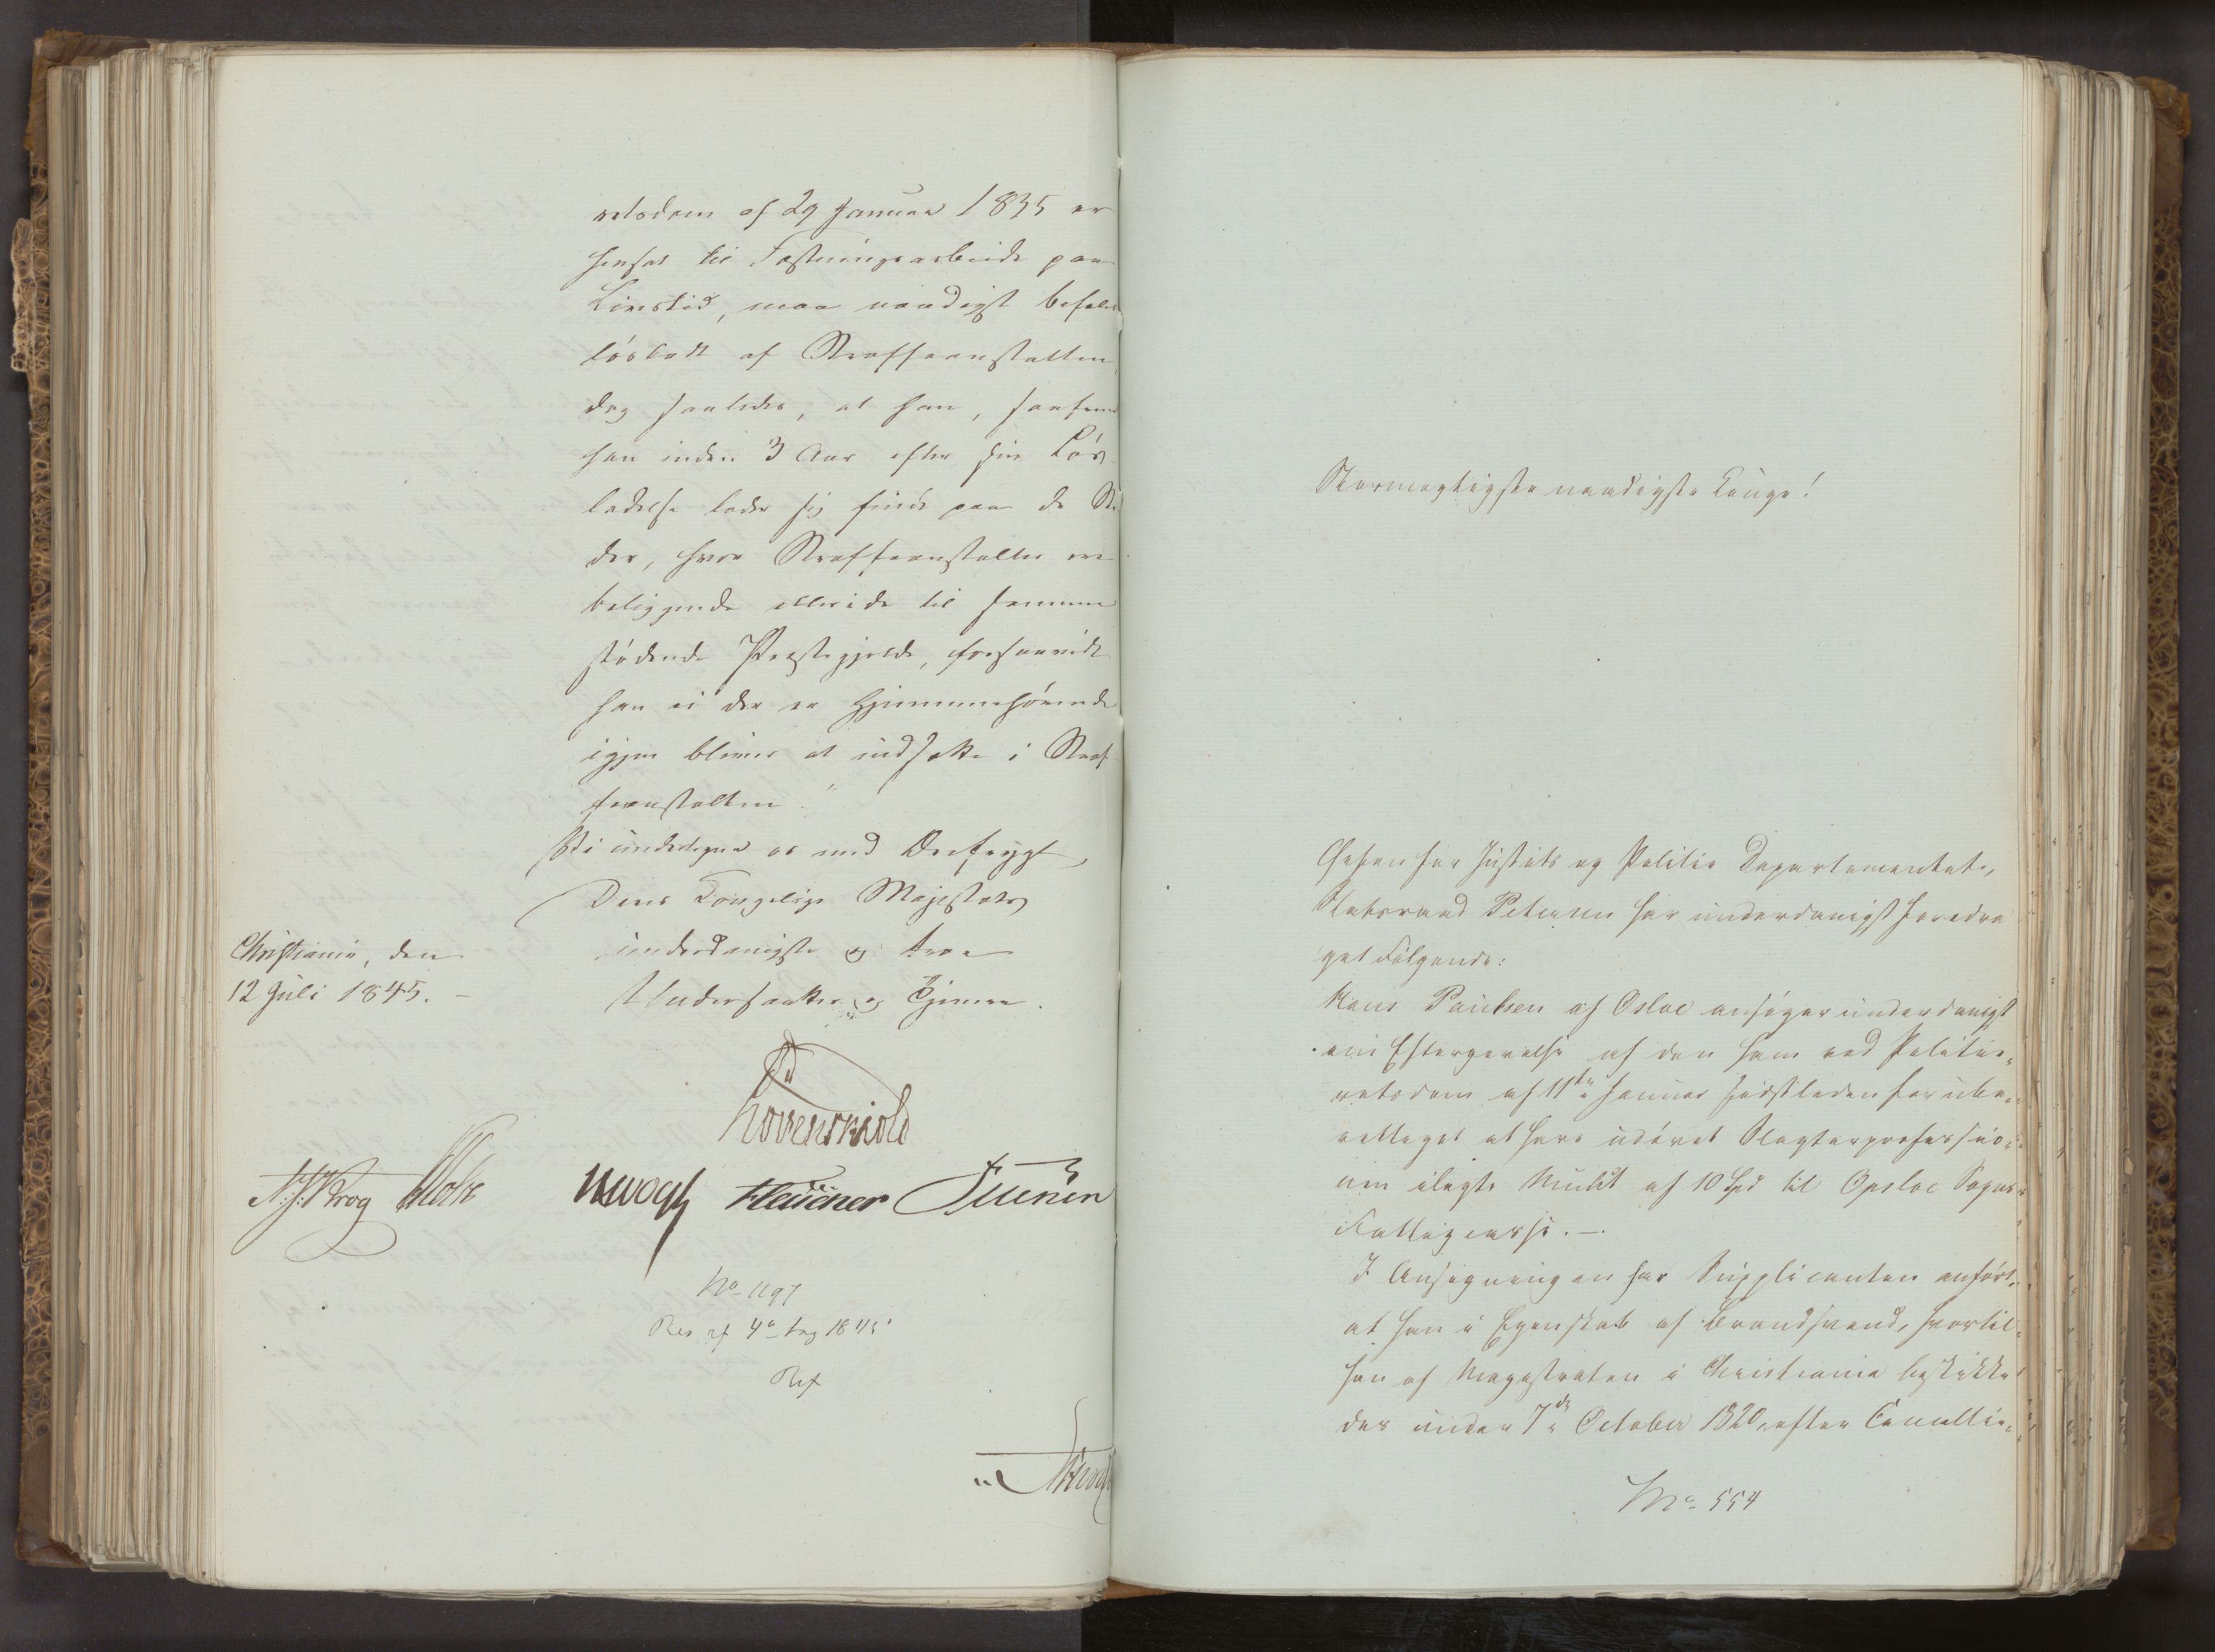 retsdom af 29 Januar 1835 er
hensat til Fæstningsarbeide paa
Livstid, maa naadigst befales
løsladt af Straffeanstalten,
dog saaledes, at han, saafremt
han inden 3 Aar efter sin Løs-
ladelse lader sig finde paa de Ste
der, hvor Straffeanstalter ere
beliggende eller i de til samme
stødende Præstegjelde, forsaavidt
han ei der er Hjemmehørende
igjen bliver at indsætte i Straf-
feanstalten."
Vi undertegne os med Ærefrygt,
Deres Kongelige Majestæts
underdanigste og troe
Undersaatter og Tjenere.
Christiania, den
12 Juli 1845. –
Løvenskiold
N. J. Krog Holst
Vogt Fleischer Petersen
No 1197
Res af 4de Aug 1845
Ref
Stormægtigste naadigste Konge!
Chefen for Justits og Politie Departementet,
Statsraad Petersen har underdanigst foredra
get Følgende:
Hans Paulsen af Osloe ansøger underdanigst
om Eftergivelse af den ham ved Politie-
retsdom af 11te Januar sidstleden for ube-
rettiget at have udøvet Slagterprofessio-
nen ilagte Mulkt af 10 Spd til Opsloe Sogns
Fattigcasse. –
I Ansøgningen har Supplicanten anført,
at han i Egenskab af Brandsvend, hvortil
han af Magistraten i Christiania beskikke
des under 7de October 1820, efter Cancellie-
No 554